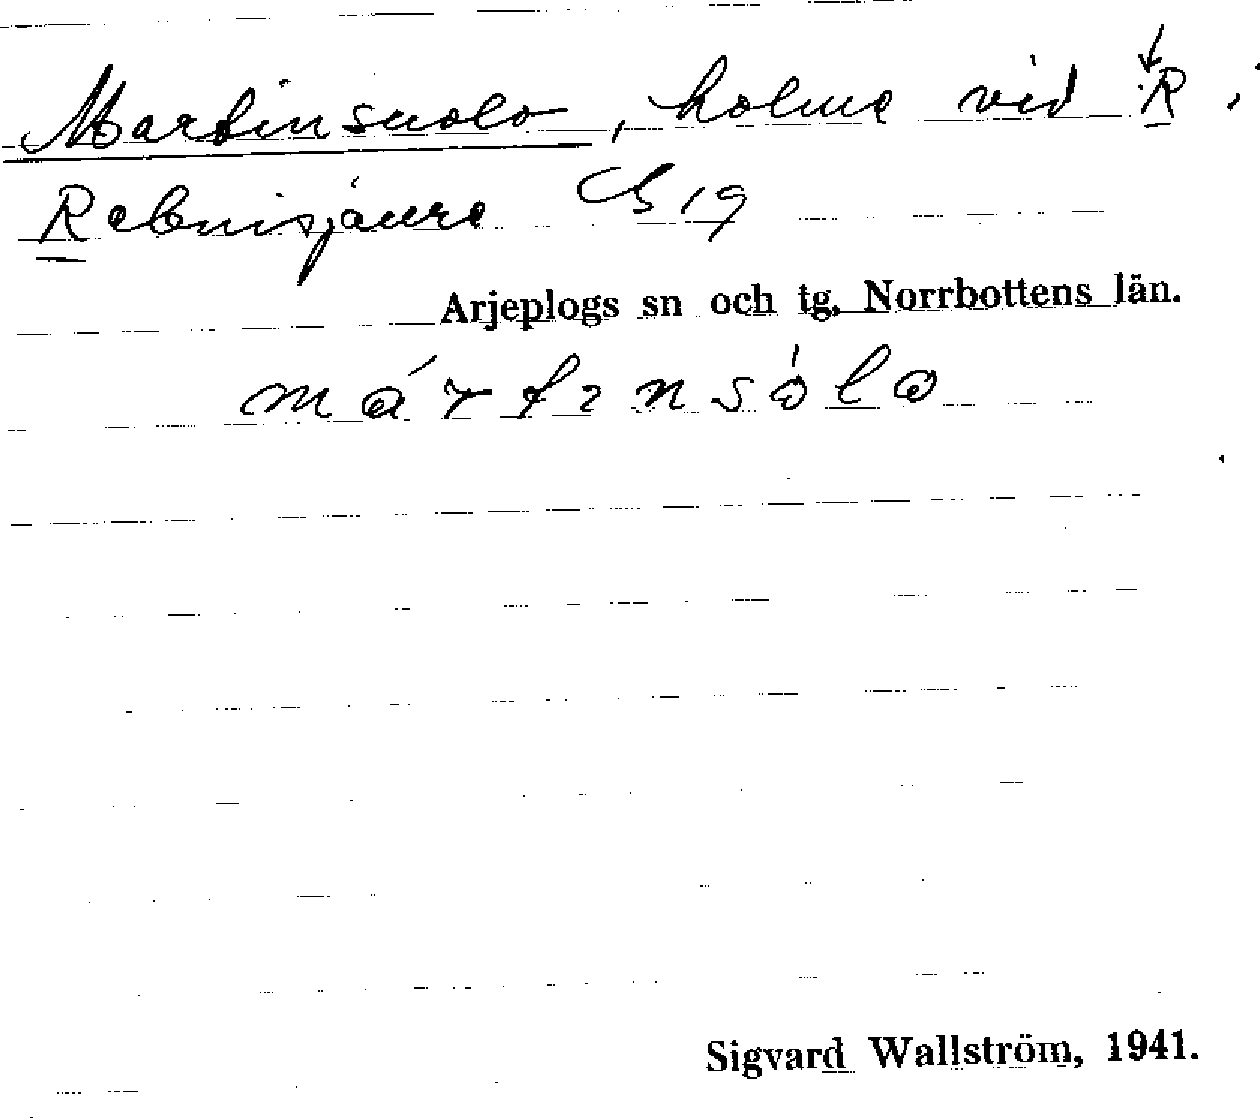 Martinsuolo, holme vid R i
Rebnisjaure C 19
Arjeplogs sn och tg, Norrbottens län.
mártinsòlo
Sigvard Wallström, 1941.